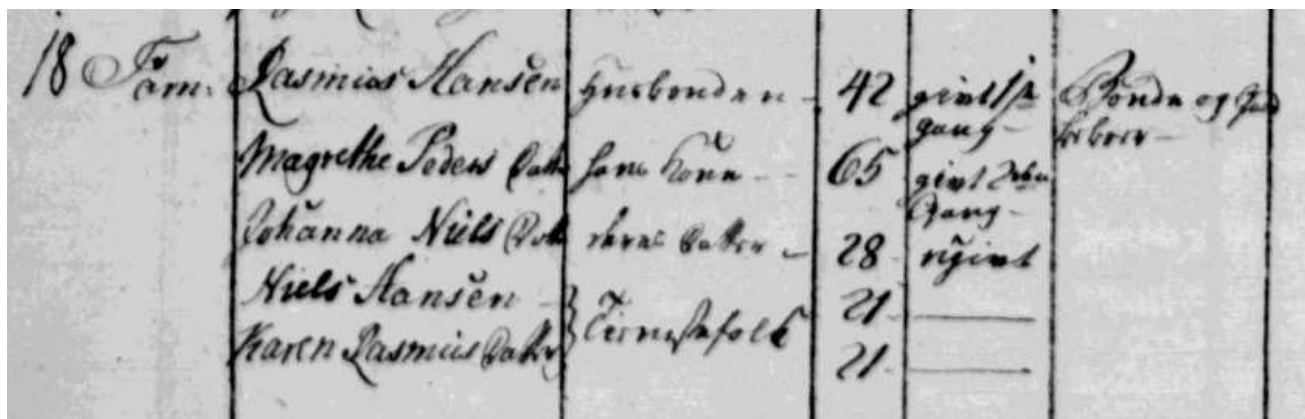 18 Fam: Rasmus Hansen Husbonden - 42 givt 1ste Bonde og Gaard
gang - beboer -
Magrethe Peders Datter hans Kone - 65 givt 2den
Gang -
Johanna Niels Datt deres Datter - 28 ugivt
Niels Hansen - 21
Tienestefolk
Karen Rasmus Datter 21